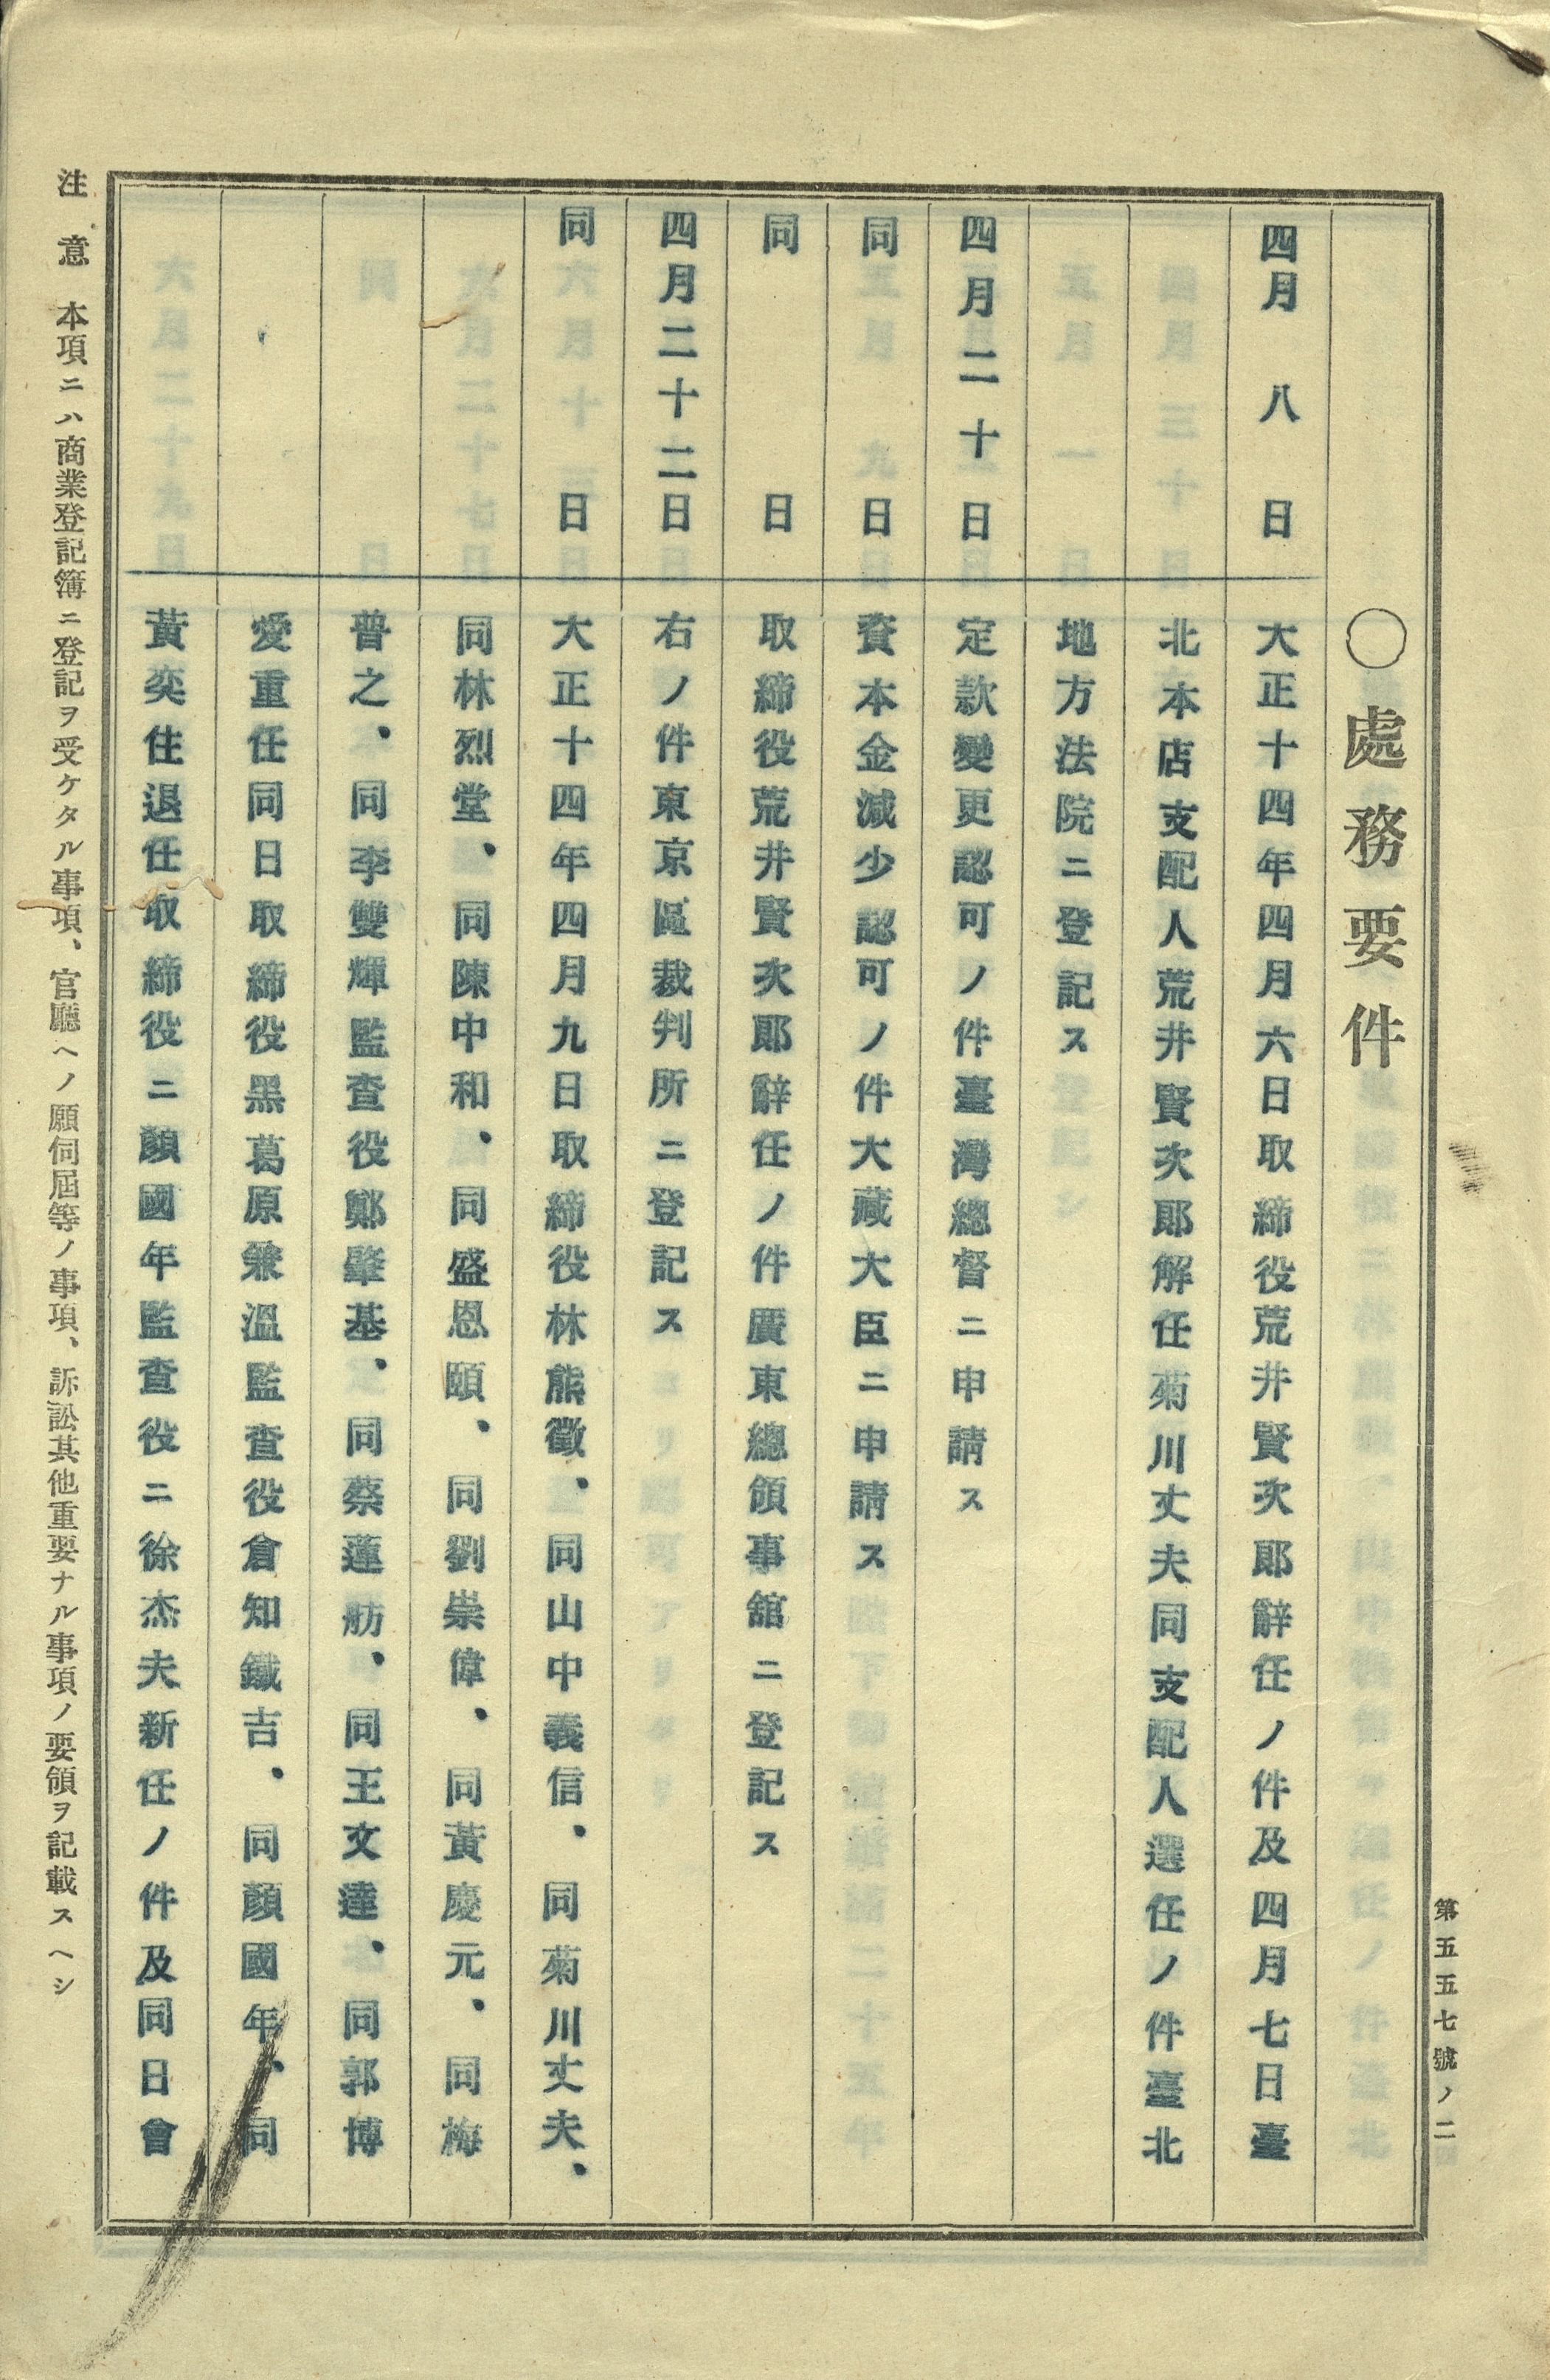 第五五七號ノ二
〇處務要件
四月八日 大正十四年四月六日取締役荒井賢次郎辭任ノ件及四月七日臺
北本店支配人荒井賢次郎解任菊川丈夫同支配人選任ノ件臺北
地方法院ニ登記ス
四月二十日 定款變更認可ノ件臺灣總督ニ申請ス
同日 資本金減少認可ノ件大藏大臣ニ申請ス
同日 取締役荒井賢次郎辭任ノ件廣東總領事舘ニ登記ス
四月二十二日 右ノ件東京區裁判所ニ登記ス
同日 大正十四年四月九日取締役林熊徵、同山中義信、同菊川丈夫、
同林烈堂、同陳中和、同盛恩頤、同劉崇偉、同黃慶元、同梅
普之、同李雙輝監查役鄭肇基、同蔡蓮舫、同王文達、同郭博
愛重任同日取締役黑葛原兼溫監查役倉知鐵吉、同顏國年、同
黃奕住退任取締役ニ顏國年監查役ニ徐杰夫新任ノ件及同日會
注意 本項ニハ商業登記簿ニ登記ヲ受ケタル事項、官廳ヘノ願伺屆等ノ事項、訴訟其他重要ナル事項ノ要領ヲ記載スヘシ